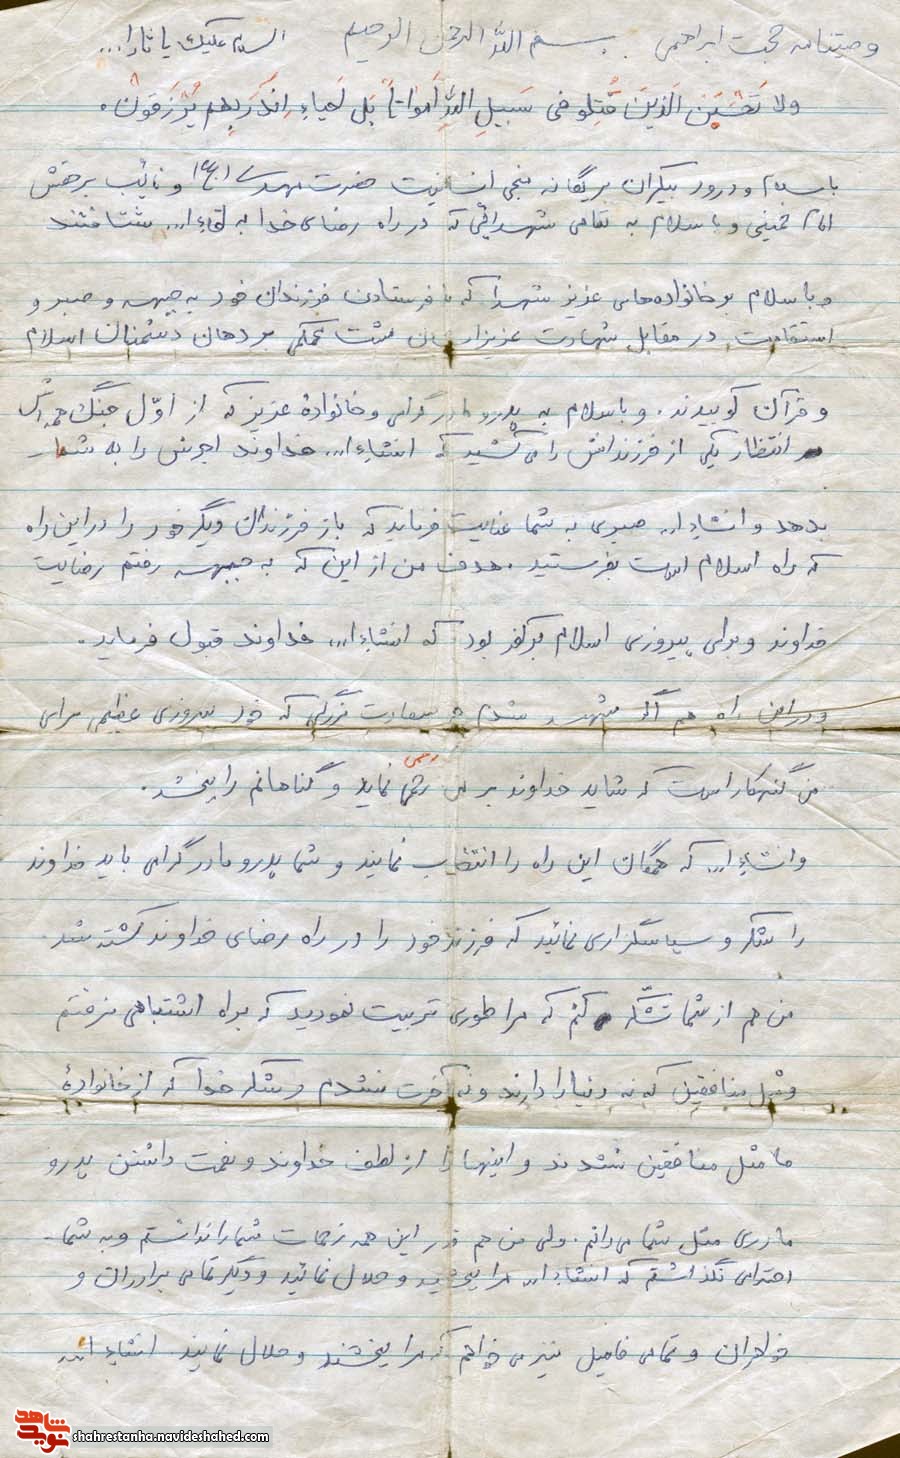 وصیتنامه حجت ابراهیمی بسم الله الرحمن الرحیم السلام علیک یا ثارا...
ولا تَحْسَبَن الَذینَ قُتِلو فی سَبیلِ اللهِ اَمواتاً بَل اَحیاءِ عِندَ رَبهِم یُرْزَقونْ.
با سلام و درود بیکران بر یگانه منجی انسانیت حضرت مهدی (عج) و نائب برحقش
امام خمینی و با سلام به تمامی شهدائی که در راه رضای خدا به لقاء ا... شتافتند
و با سلام بر خانواده‌های عزیز شهدا که با فرستادن فرزندان خود به جبهه و صبر و
استقامت در مقابل شهادت عزیزانشان مشت محکمی بر دهان دشمنان اسلام
و قرآن کوبیدند. و با سلام به پدر و مادر گرامی و خانوادهٔ عزیز که از اوّل جنگ همه‌اش
انتظار یکی از فرزندانش را می کشید که انشاء ا... خداوند اجرش را به شما
بدهد و انشاء ا... صبری به شما عنایت فرماید که باز فرزندان دیگر خود را در این راه
که راه اسلام است بفرستید. هدف من از این که به جبهه رفتم رضایت
خداوند و برای پیروزی اسلام بر کفر بود که انشاء ا... خداوند قبول فرماید.
و در این راه هم اگر شهید شدم سعادت بزرگی که خود پیروزی عظیم برای
من گنهکار است که شاید خداوند بر من رحمی نماید و گناهانم را ببخشد.
رحمی
وانشاء ا... که همگان این راه را انتخاب نمایند و شما پدر و مادر گرامی باید خداوند
را شکر و سپاسگزاری نمائید که فرزند خود را در راه رضای خداوند کشته شد.
من هم از شما تشکّر کنم که مرا طوری تربیت نمودید که براه اشتباهی نرفتم
و مثل منافقین که نه دنیا را دارند و نه آخرت نشدم و شکر خدا که از خانوادهٔ
ما مثل منافقین نشدند و اینها را از لطف خداوند و نعمت داشتن پدر و
مادری مثل شما می‌دانم. ولی من هم قدر این همه زحمات شما را ندانستم و به شما
احترامی نگذاشتم که انشاء ا... مرا ببخشید و حلال نمائید و دیگر تمامی برادران و
خواهران و تمامی فامیل نیز می خواهم که مرا ببخشند و حلال نمایند. انشاء الله
نوید شاهد
shahrestanha.navideshahed.com